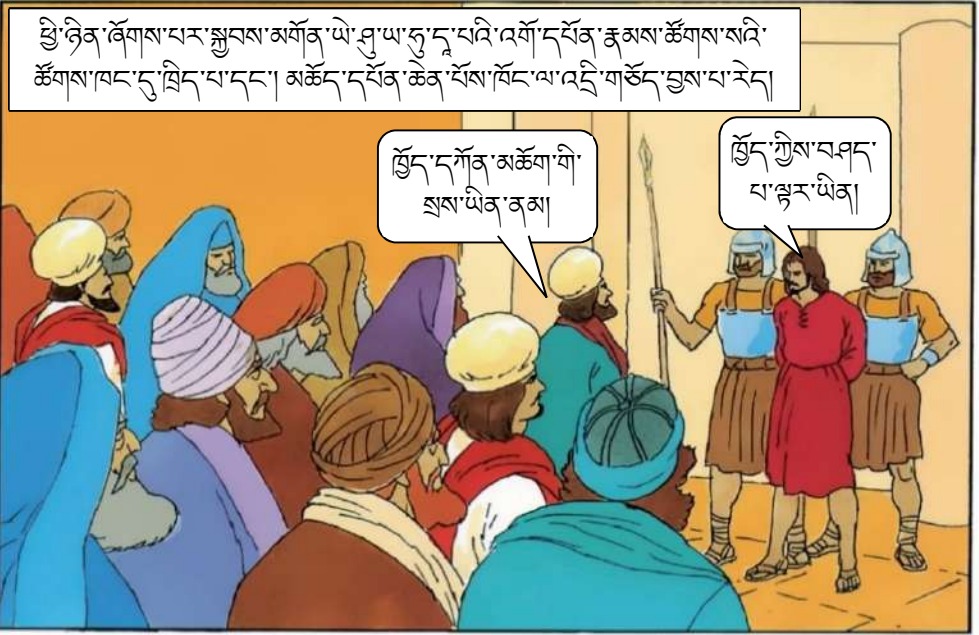 ཕྱི་ཉིན་ཞོགས་པར་སྐྱབས་མགོན་ཡེ་ཤུ་ཡ་ཧུ་དཱ་པའི་འགོ་དཔོན་རྣམས་ཚོགས་སའི་
ཚོགས་ཁང་དུ་ཁྲིད་པ་དང་། མཆོད་དཔོན་ཆེན་པོས་ཁོང་ལ་འདྲི་གཅོད་བྱས་པ་རེད།
ཁྱོད་དཀོན་མཆོག་གི་
སྲས་ཡིན་ནམ།
ཁྱོད་ཀྱིས་བཤད་
པ་ལྟར་ཡིན།